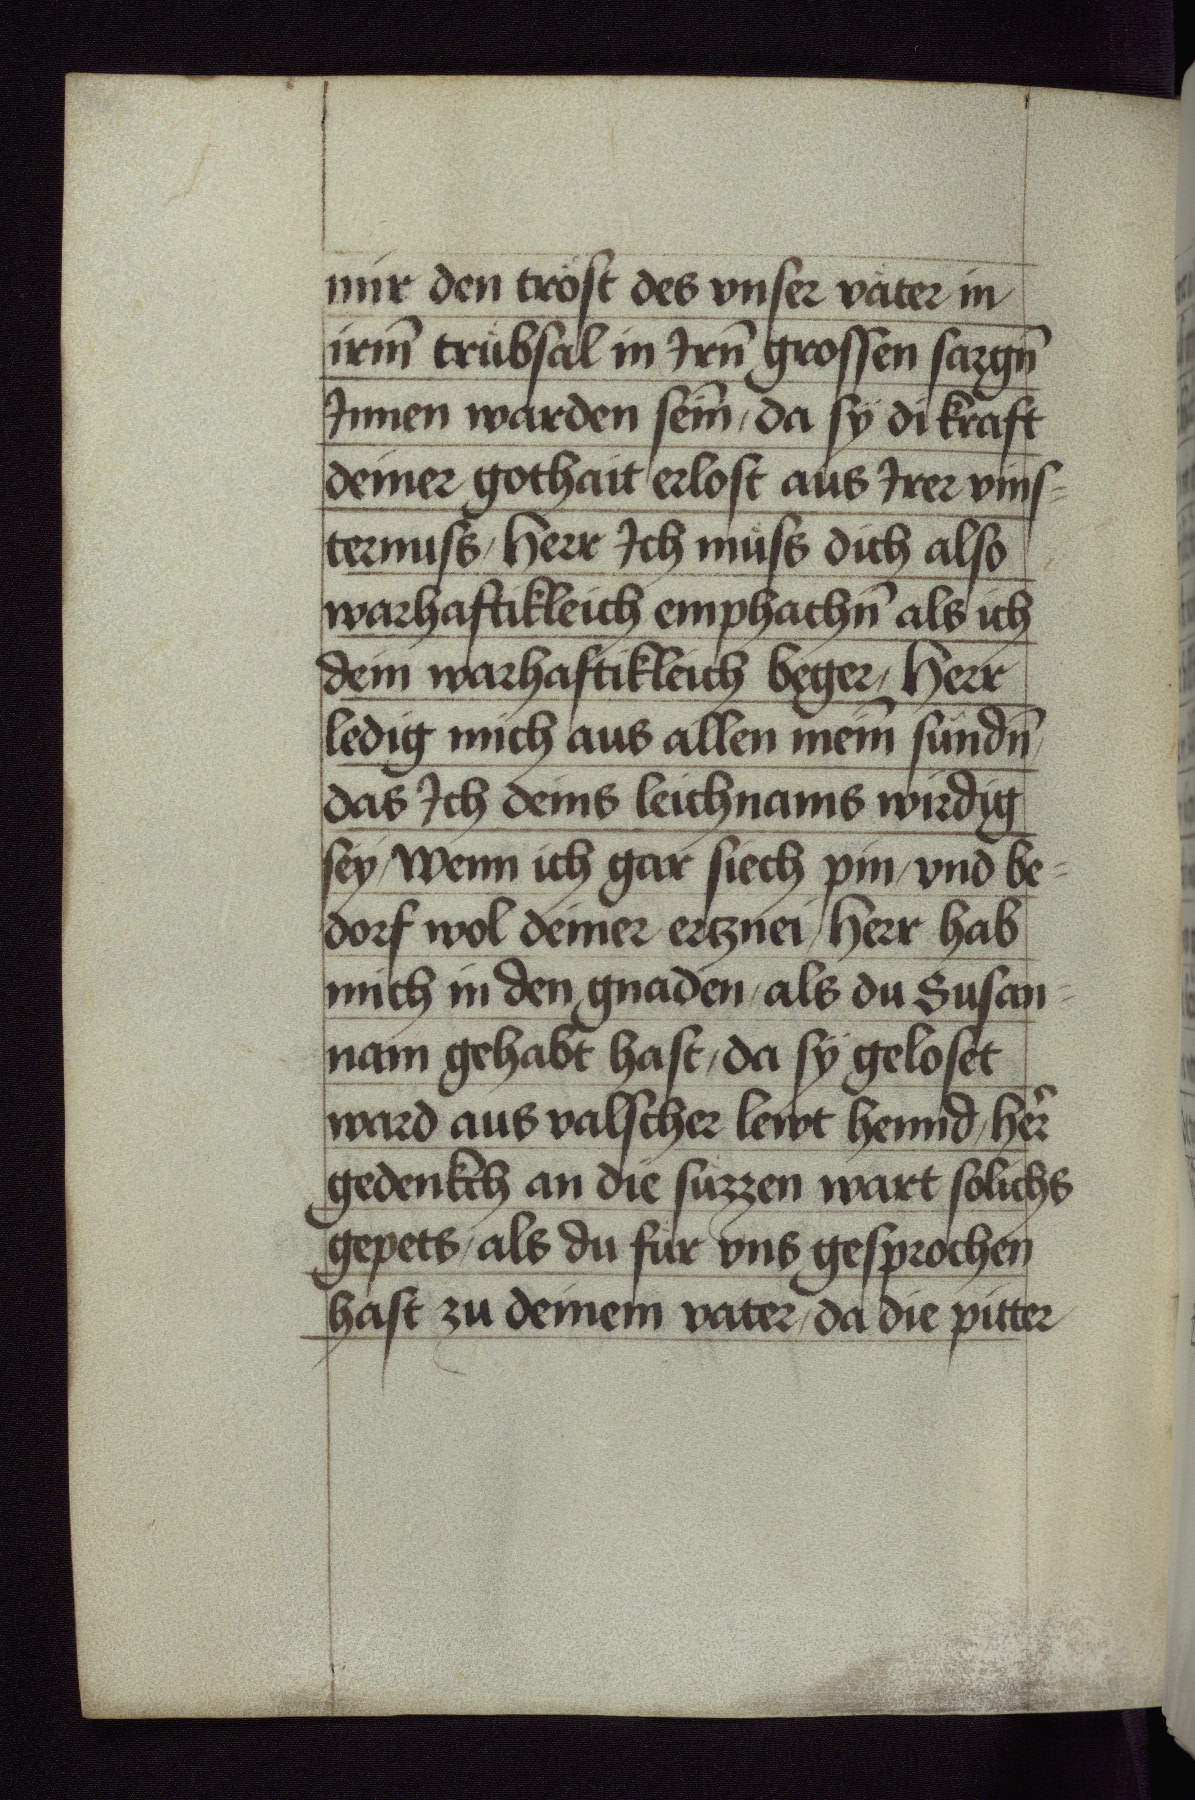 mir den tröst des vnser väter in
irm̄ trübsal in Irn̄ grossen sargn̄
Innen warden sein̄ / da sÿ di kraft
deiner gothait erlost aus Irer vins=
ternuss / Herr Ich müss dich also
warhaftikleich emphachn̄ als ich
dein warhaftikleich beger / Herr
ledig mich aus allen mein̄ sündn̄ /
das Ich deins leichnams wirdig
seÿ / Wenn ich gar siech pin / vnd be=
dorf wol deiner ertznei / Herr hab
mich in den gnaden / als du Susan=
nam gehabt hast / da sÿ geloset
ward aus valscher lewt hennd / her̄
gedenkch an die süzzen wart solichs
gepets / als du für vns gesprochen
hast zu deinem vater / da die pitter